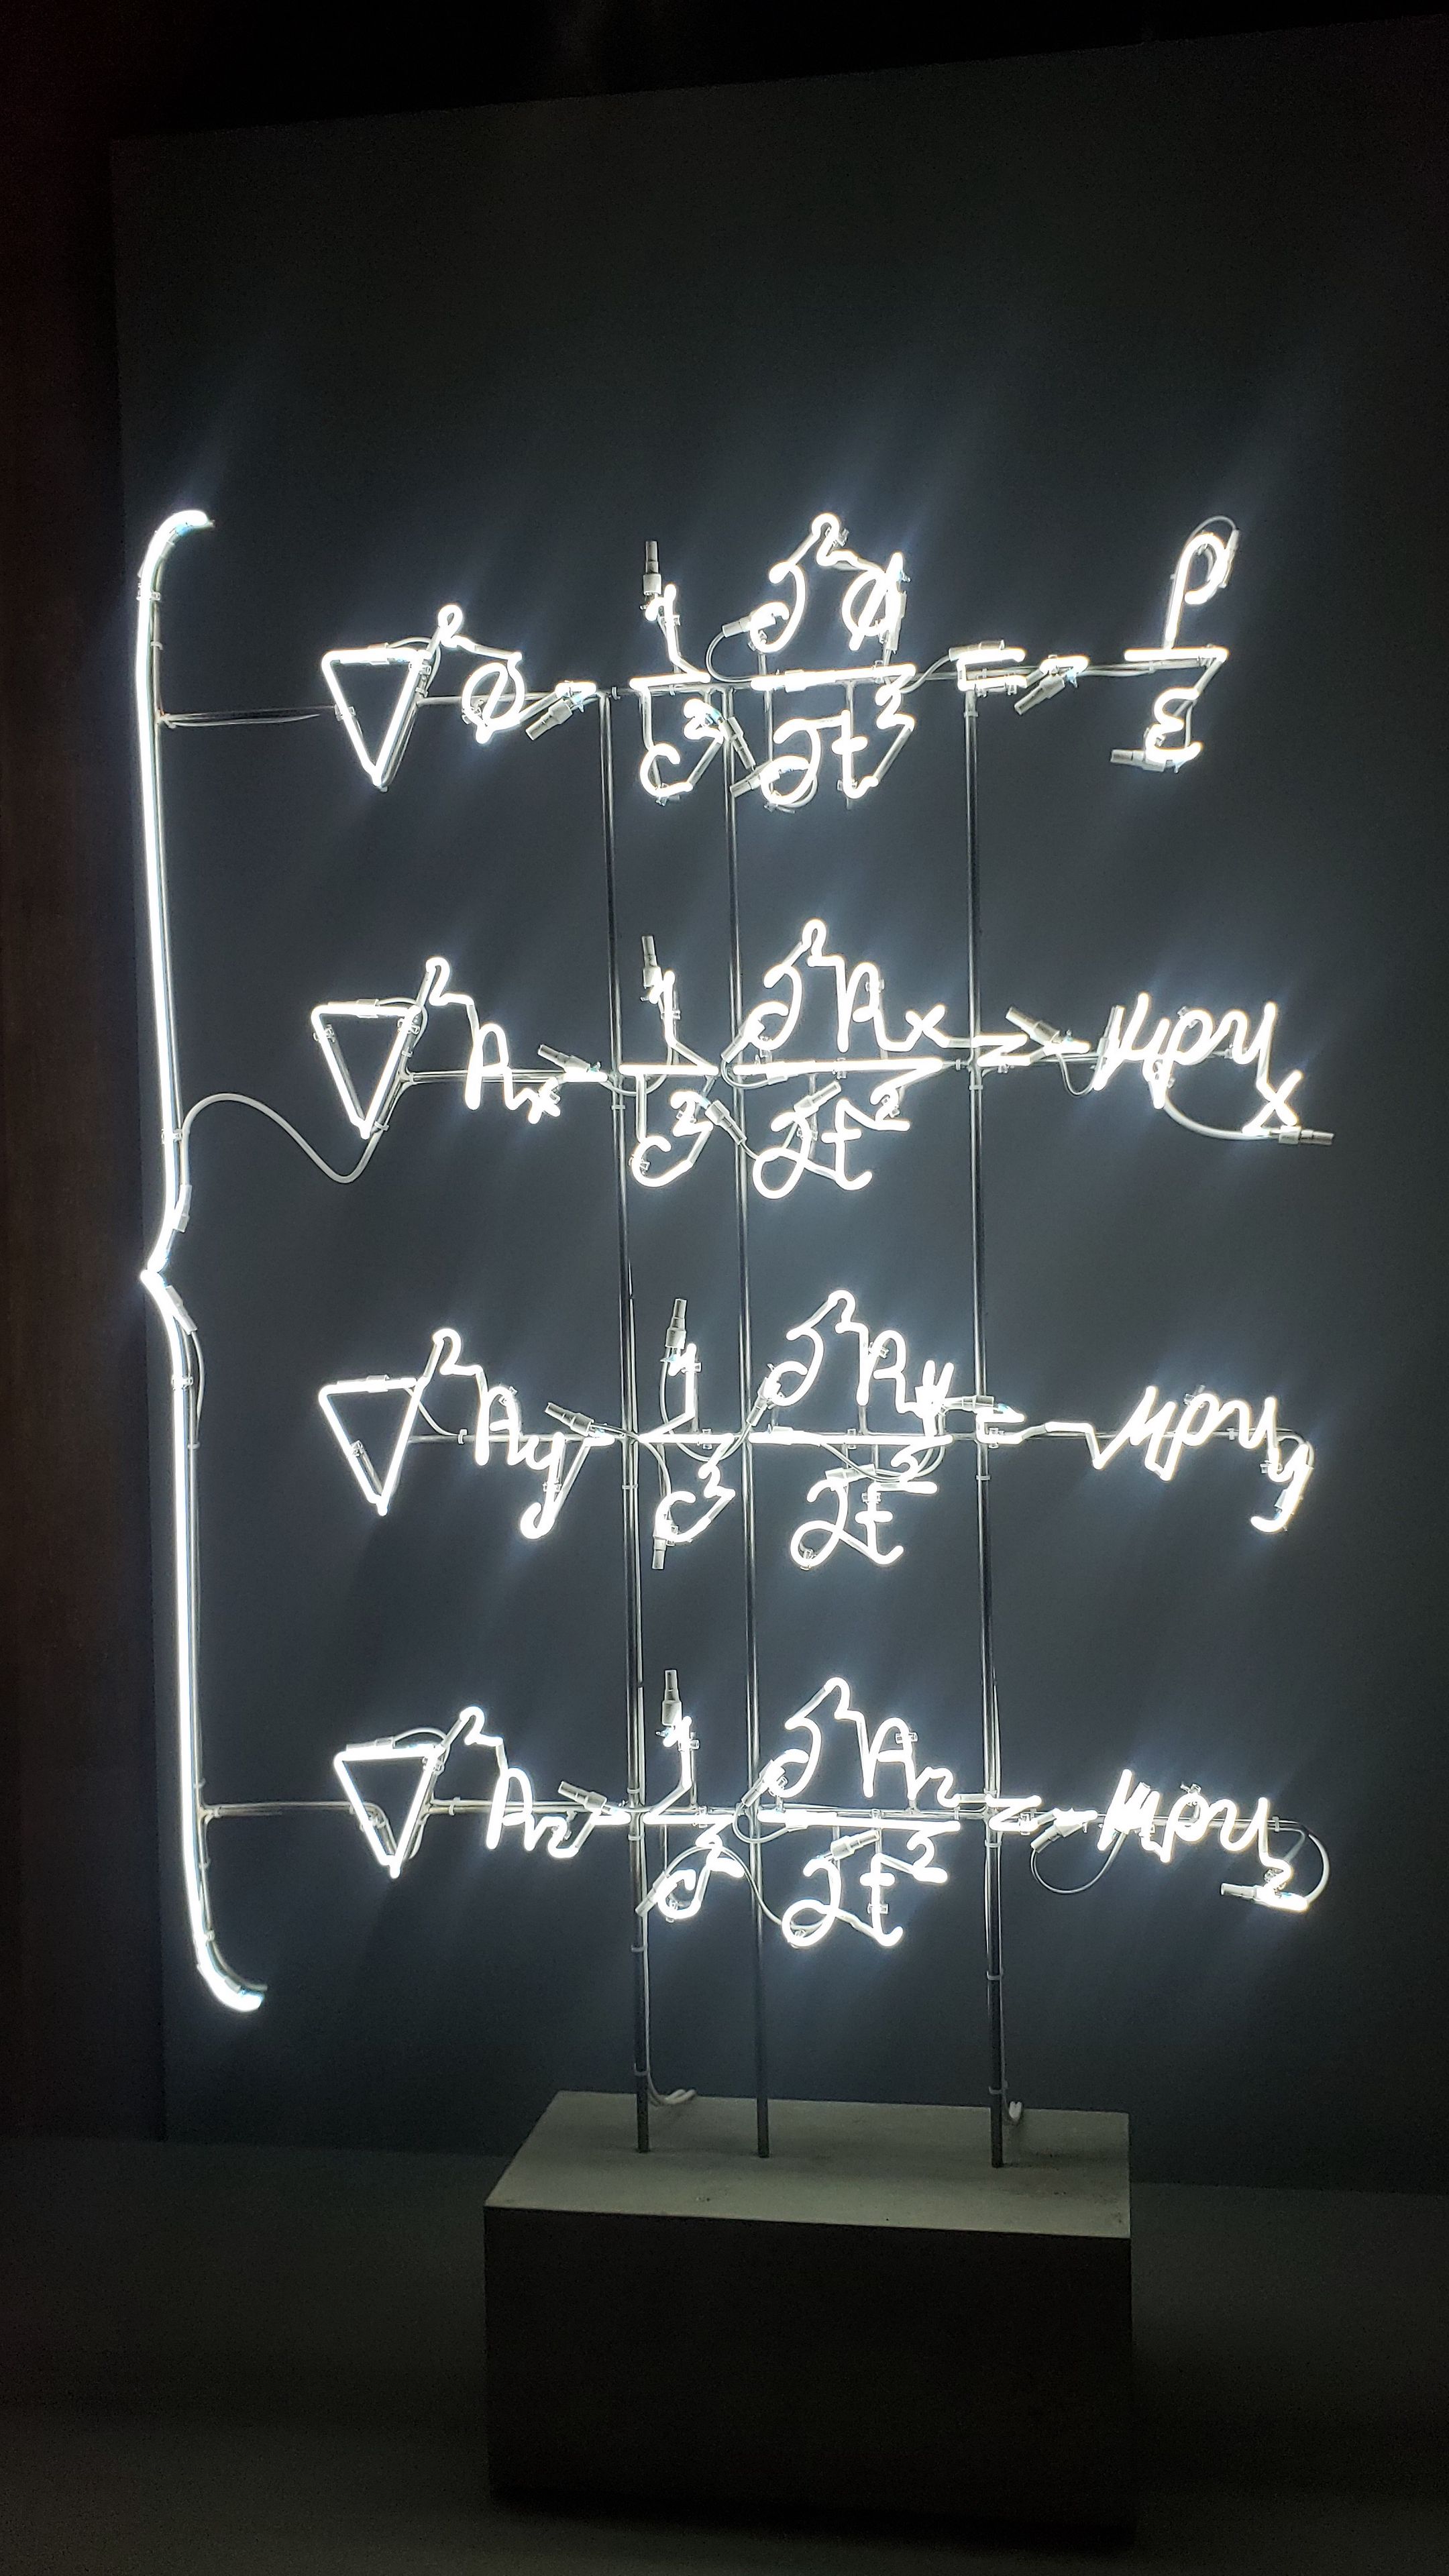 ∇²φ − 1/c² ∂²φ/∂t² = − ρ/ε
∇²Aₓ − 1/c² ∂²Aₓ/∂t² = − μρuₓ
∇²A_y − 1/c² ∂²A_y/∂t² = − μρu_y
∇²A_z − 1/c² ∂²A_z/∂t² = − μρu_z